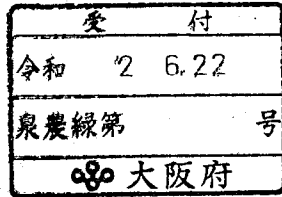 受 付
令和 2 6.22
泉農緑第 号
大阪府